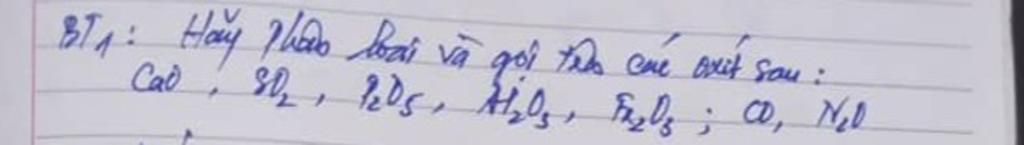 BT1: Hãy phân loại và gọi tên các oxit sau:
CaO, SO2, P2O5, Al2O3, Fe2O3; CO, N2O